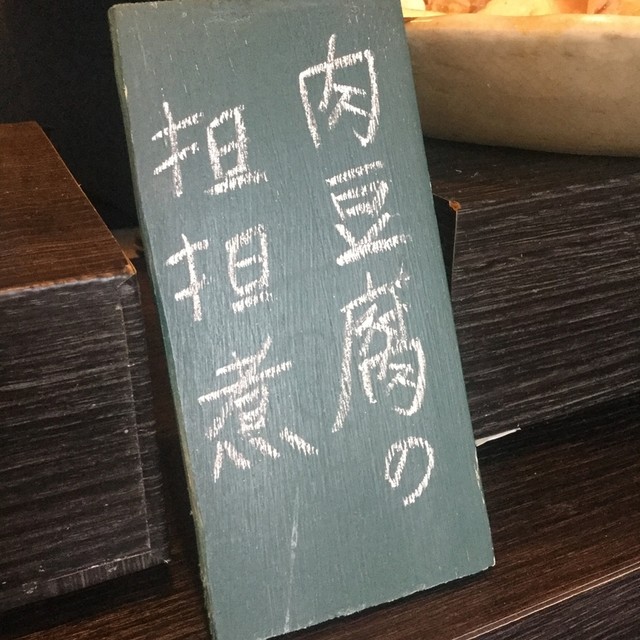 肉豆腐の
担担煮